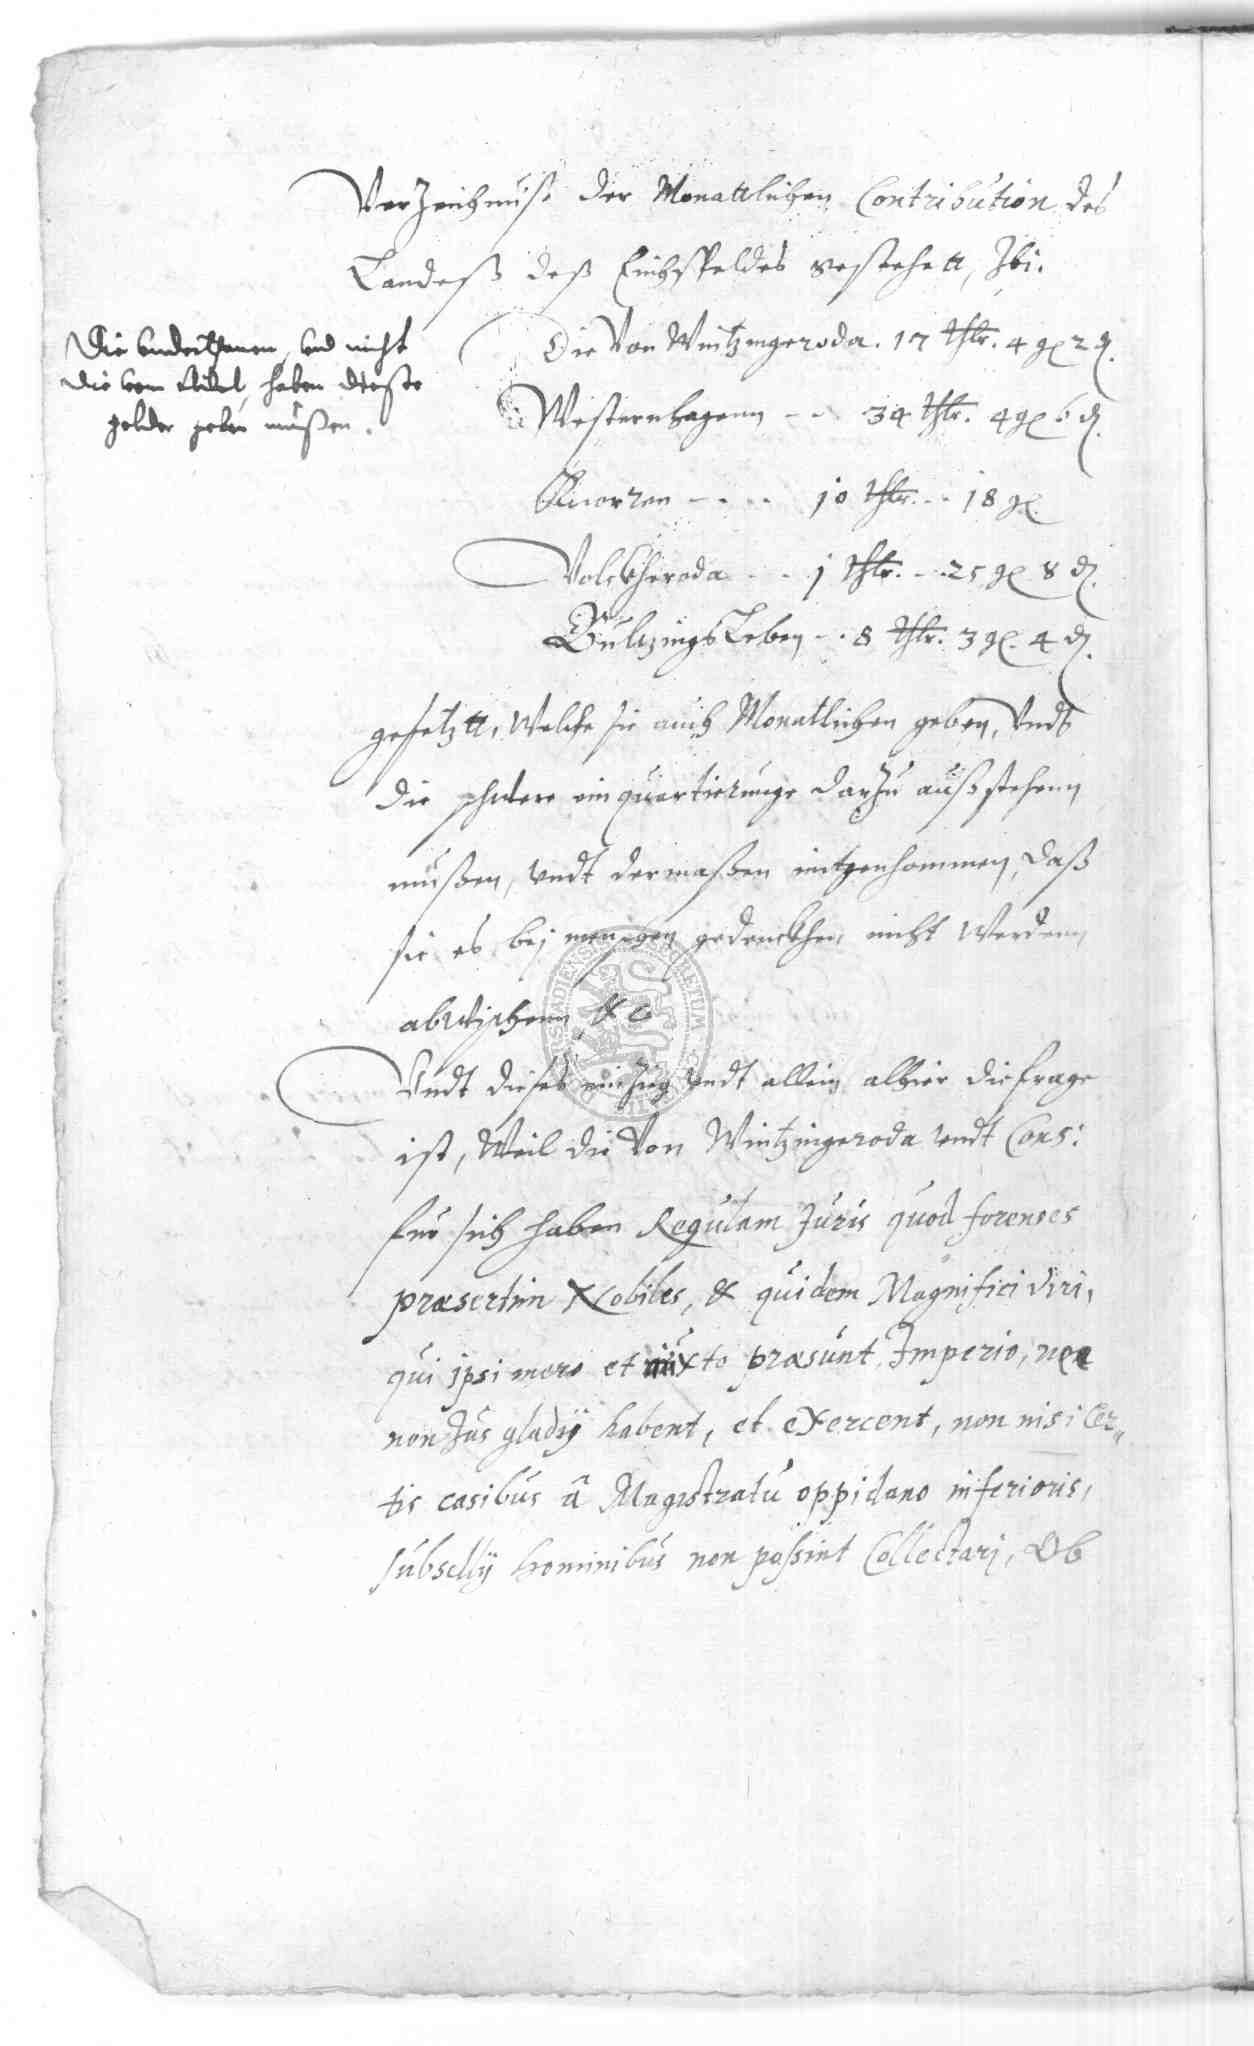 Verzeichnuß der Monattlichen Contribution des
Landeß deß Eichsfeldes vestehett, Ibi.
Die Underthanen, und nicht
die vom Adel, haben dieße
gelder geben mußen.
Die Von Wintzingeroda. 17 thlr. 4 gl 2 d.
Westernhagenn - - 34 thlr. 4 gl 6 d.
Knorren - - - - 10 thlr. - - 18 gl.
Volckheroda - - 1 thlr. - - 25 gl 8 d.
Bultzingsleben - - 8 thlr. 3 gl. 4 d.
gesetztt, Welche sie auch Monatlichen geben, Undt
die schwere einquartierunge darzu außstehenn
mußen, undt dermaßen eingenhommen, daß
sie es bej menschen gedenckhen nicht Werdenn
abwischenn &c
Undt dieses einzig undt allein alhier die frage
ist, Weil die Von Wintzingeroda undt Cons:
fur sich haben Regulam Juris quod forenses
præsertim Nobiles, & quidem Magnifici viri,
qui ipsi mero et mixto præsunt Imperio, nec
non Jus gladij habent, et exercent, non nisi Cer„
tis casibus â Magistratu oppidano inferioris,
subsellij hominibus non possint Collectari, Ob